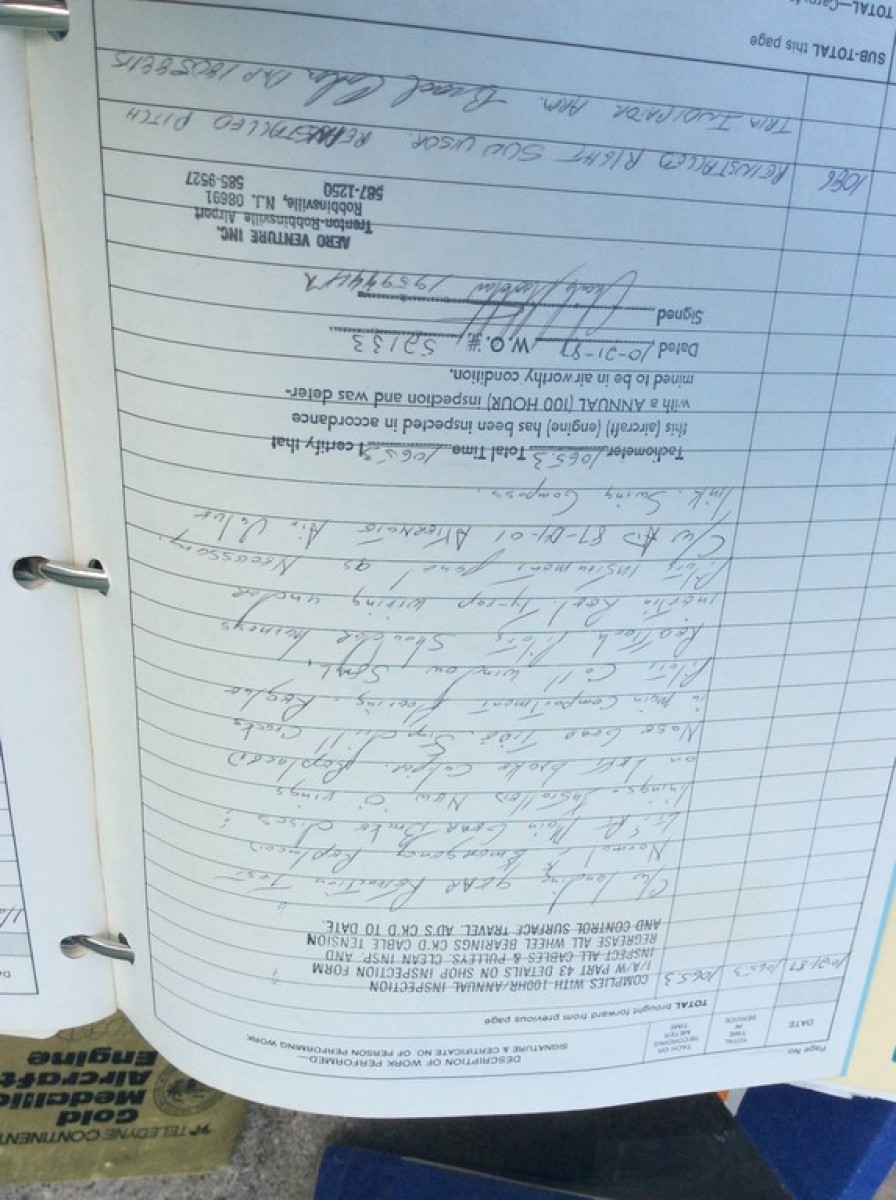 Page No.
DATE
TOTAL TIME IN SERVICE
TACH OR RECORDING METER TIME
DESCRIPTION OF WORK PERFORMED—
SIGNATURE & CERTIFICATE NO. OF PERSON PERFORMING WORK
TOTAL brought forward from previous page
10-21-87 1065.3 1065.3 COMPLIES WITH 100HR/ANNUAL INSPECTION
I/A/W PART 43 DETAILS ON SHOP INSPECTION FORM
INSPECT ALL CABLES & PULLEYS. CLEAN INSP. AND
REGREASE ALL WHEEL BEARINGS CK'D CABLE TENSION
AND CONTROL SURFACE TRAVEL. AD'S CK'D TO DATE.
C/W landing gear Retraction Test
Normal & Emergency Replaced
L & R Main Gear Brake discs &
linings. Installed New 'O' rings
on Left brake Caliper. Replaced
Nose Gear Tire. Stop drill Cracks
in Main Compartment flooring. Reglue
Pilots window Seal.
Reattach Pilots Shoulder harness
inertia Reel. Ty-rap wiring under
Pilots instrument panel as Necessary.
C/W AD 87-01 Alternate Air Valve
link. Swing Compass.
Tachometer 1065.3 Total Time 1065.3 I certify that
this (aircraft) (engine) has been inspected in accordance
with a ANNUAL (100 HOUR) inspection and was deter-
mined to be in airworthy condition.
Dated 10-21-87 W.O. # 52133
Signed
AERO VENTURE INC.
Trenton-Robbinsville Airport
Robbinsville, N.J. 08691
587-1250 585-9527
1086 REINSTALLED RIGHT SUN VISOR. REINSTALLED PITCH
TRIM INDICATOR ARM.
SUB-TOTAL this page
TELEDYNE CONTINENT
Gold
Medallio
Aircraft
Engine